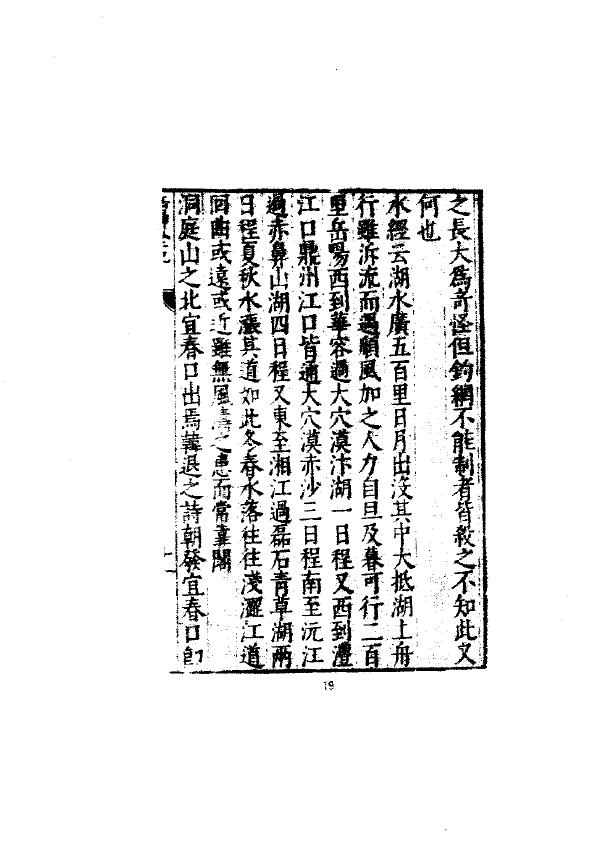 之長大爲竒怪但釣網不能制者皆殺之不知此又
何也
水經云湖水廣五百里日月出沒其中大抵湖上舟
行雖泝流而遇順風加之人力自旦及暮可行二百
里岳陽西到華容過大穴漠汴湖一日程又西到澧
江口鼎州江口皆通大穴漠赤沙三日程南至沅江
過赤鼻山湖四日程又東至湘江過磊石青草湖兩
日程夏秋水漲其道如此冬春水落往往淺澀江道
回曲或遠或近雖無風濤之患而常靠閣
洞庭山之北宜春口出焉韓退之詩朝發宜春口卽
19